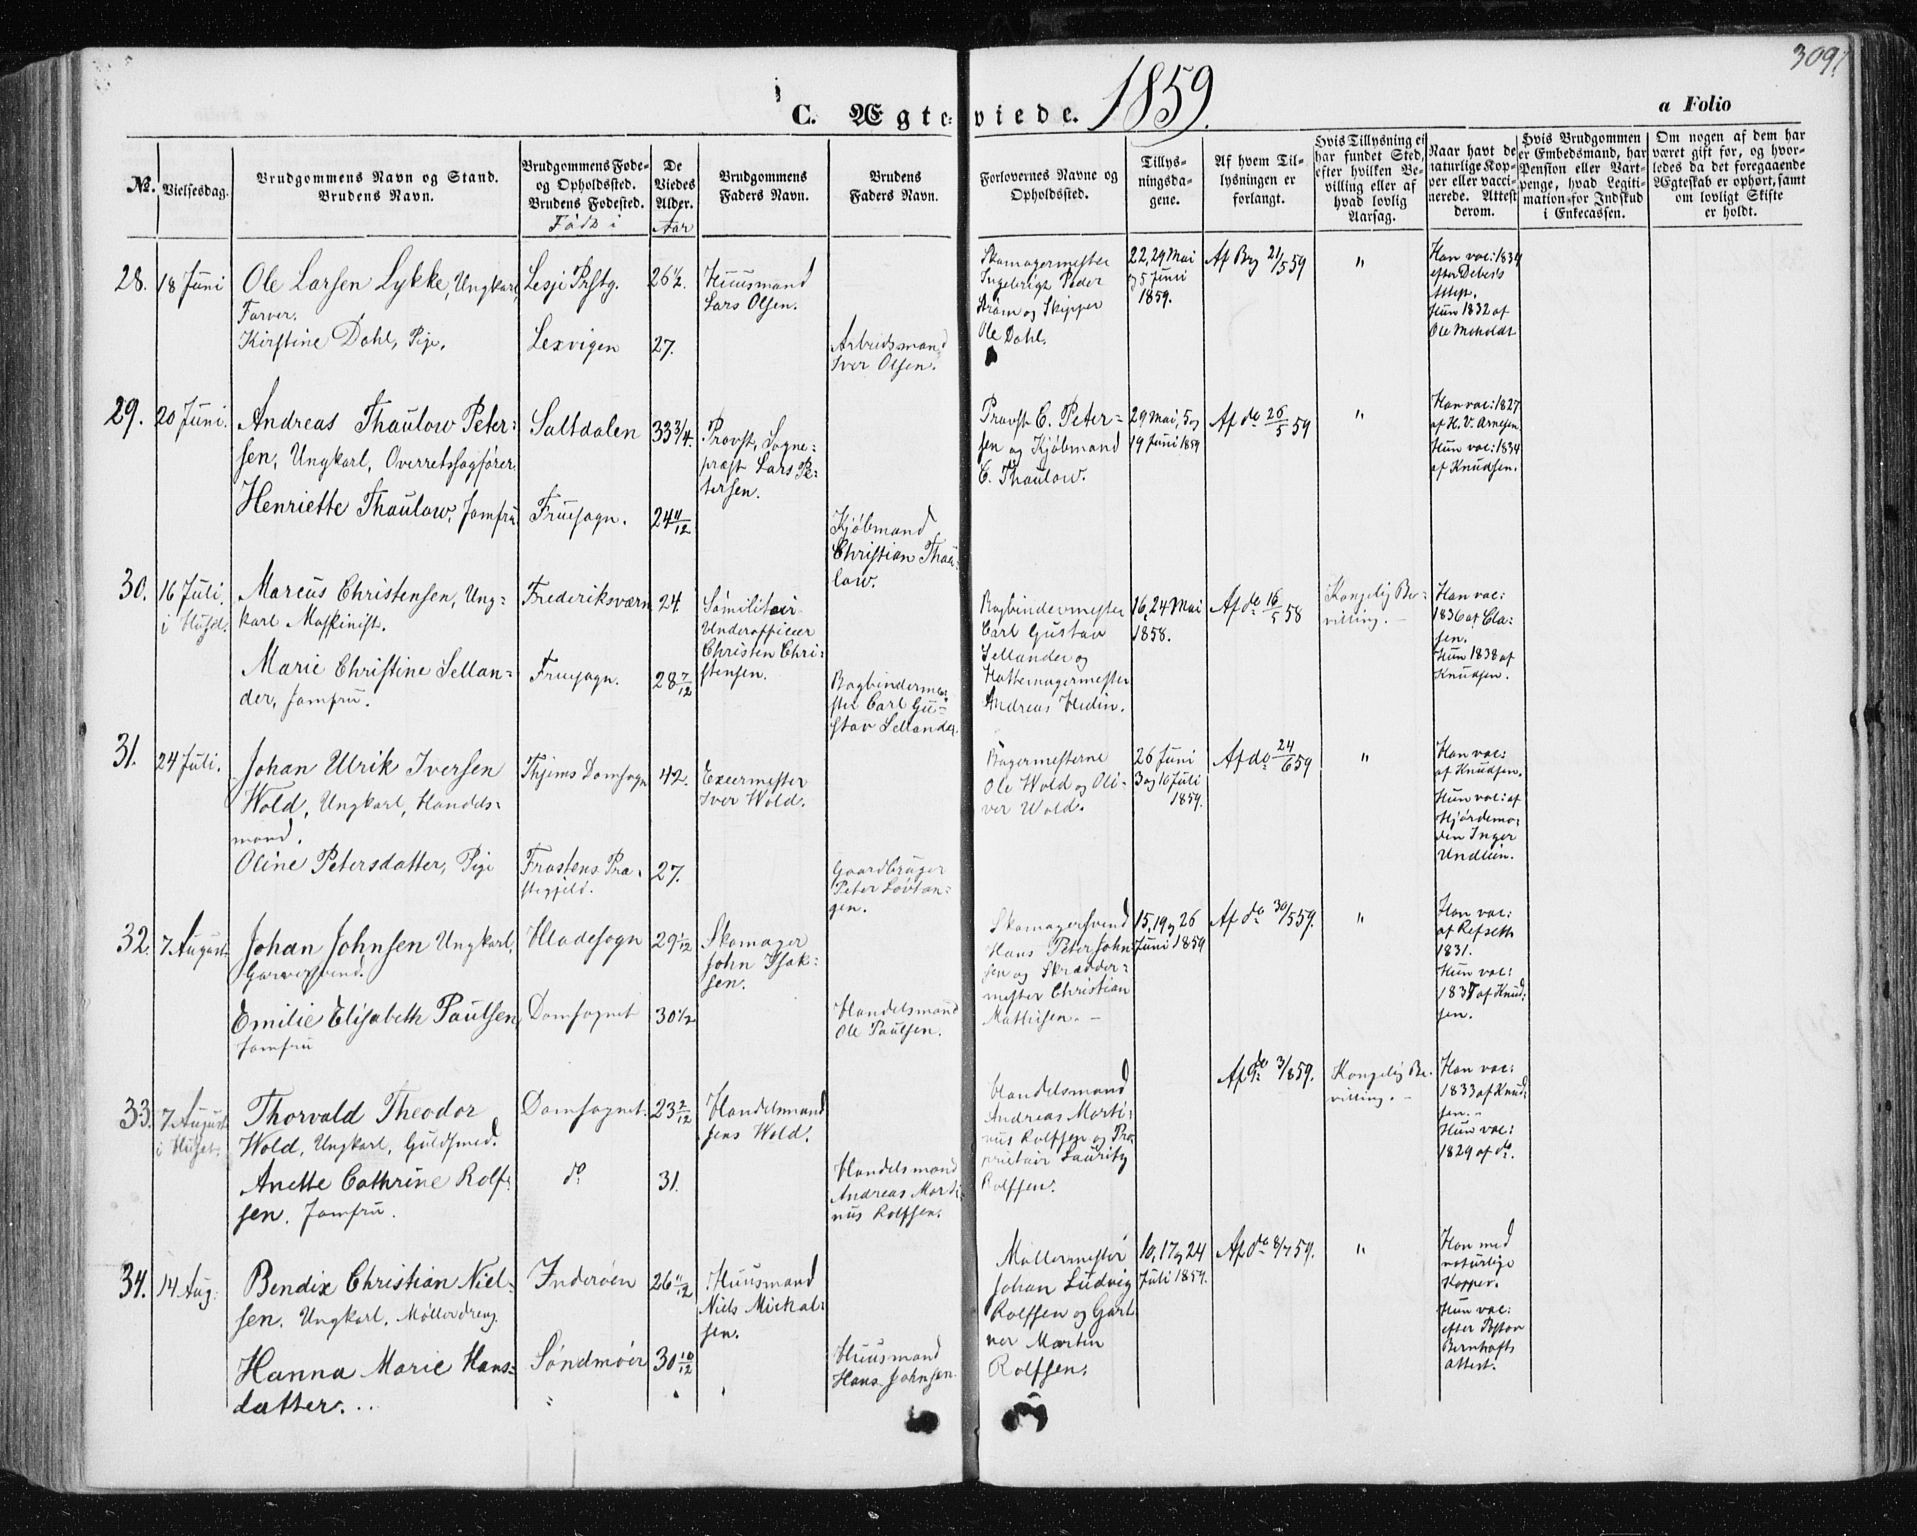 309.
C. Ægteviede. 1859.
a Folio
No.
Vielsesdag.
Brudgommens Navn og Stand.
Brudens Navn.
Brudgommens Føde-
og Opholdssted.
Brudens Fødested.
Født i
De
Viedes
Alder.
Aar
Brudgommens
Faders Navn.
Brudens
Faders Navn.
Forlovernes Navne og
Opholdssted.
Tillys-
ningsda-
gene.
Af hvem Til-
lysningen er
forlangt.
Hvis Tillysning ei
har fundet Sted,
efter hvilken Be-
villing eller af
hvad lovlig
Aarsag.
Naar havt de
naturlige Kop-
per eller vacci-
nerede. Attest
derom.
Hvis Brudgommen
er Embedsmand, har
Pension eller Vart-
penge, hvad Legiti-
mation for Indskud
i Enkecassen.
Om nogen af dem har
været gift for, og hvor-
ledes da det foregaaende
Ægteskab er ophørt, samt
om lovligt Skifte
er holdt.
28.
18 Juni
Ole Larsen Lykke, Ungkarl,
Farver.
Kirstine Dahl, Pige.
Lesje Prstg.
Lexvigen
26 1/2.
27.
Huusmand
Lars Olsen.
Arbeidsmand
Iver Olsen.
Skomagermester
Ingebrigt Peder
Strøm og Skipper
Ole Dahl.
22, 29 Mai
og 5 Juni
1859.
Af Brg 21/5 59
"
Han vac: 1834
efter Debes's
Attest.
Hun 1832 af
Ole Moholdt
29.
20 Juni.
Andreas Thaulow Peter-
sen, Ungkarl, Overretssagfører.
Henriette Thaulow, Jomfru.
Saltdalen
Fruesogn.
33 3/4.
24 11/12
Provst, Sogne-
præst Lars Pe-
tersen.
Kjøbmand
Christian Thau-
low.
Provst C. Peter-
sen og Kjøbmand
C. Thaulow.
29 Mai, 5 og
19 Juni 1859
Af do 26/5 59
"
Han vac: 1827
af H. V. Arnesen
Hun vac: 1834
af Knudsen.
30.
16 Juli.
i Huset.
Marcus Christensen, Ung-
karl Maskinist.
Marie Christine Sellan-
der, Jomfru.
Frederiksværn
Fruesogn.
24.
28 7/12
Sømilitair
Underofficier
Christen Chri-
stensen.
Bogbinderme-
ster Carl Gu-
stav Sellander.
Bogbindermester
Carl Gustav
Sellander og
Hattemagermester
Andreas Hedin.
16, 24 Mai
1858.
Af do 16/5 58
Kongelig Be-
villing. —
Han vac:
1836 af Cla-
sen.
Hun 1838 af
Knudsen.
31.
24 Juli.
Johan Ulrik Iversen
Wold, Ungkarl, Handels-
mand.
Oline Petersdatter, Pige
Thjems Domsogn
Frostens Præ-
stegjeld.
42.
27.
Exeermester
Iver Wold.
Gaardbruger
Peter Løvtan-
gen.
Bagermesterne
Ole Wold og Oli-
ver Wold.
26 Juni
3 og 10 Juli
1859.
Af do 24/6 59
"
Han vac:
af Knudsen.
Hun vac: af
Hjordemo-
den Inger
Undlien.
32.
7 August
Johan Johnsen Ungkarl,
Garversvend.
Emilie Elisabeth Paulsen,
Jomfru
Hladesogn
Domsognet
29 1/12
30 1/2
Skomager
John Isak-
sen.
Handelsmand
Ole Paulsen.
Skomagersvend
Hans Peter John-
sen og Skrædder-
mester Christian
Mathisen. —
15, 19 og 26
Juni 1859
Af do 30/5 59.
"
Han vac:
af Refseth
1831.
Hun vac:
af Knud-
sen.
33.
7 August
i Huset.
Thorvald Theodor
Wold, Ungkarl, Guldsmed.
Anette Cathrine Rolf-
sen. Jomfru.
Domsognet.
do
23 2/12
31.
Handelsmand
Jens Wold.
Handelsmand
Andreas Marti-
nus Rolfsen.
Handelsmand
Andreas Marti-
nus Rolfsen og Pro-
prietair Lauritz
Rolfsen.
Af do 3/8 59.
Kongelig Be-
villing. —
Han vac:
1833 af Knud-
sen. —
Hun vac:
1829 af do.
34.
14 Aug.
Bendix Christian Niel-
sen. Ungkarl. Møllerdreng.
Hanna Marie Hans-
datter.
Inderøen
Søndmøer
26 11/12
30 10/12
Huusmand
Niels Mickal-
sen.
Huusmand
Hans Johnsen.
Møllermester
Johan Ludvig
Rolfsen og Gart-
ner Martin
Rolfsen.
10, 17 og 24
Juli 1859.
Af do 8/7 59.
"
Han med
naturlige
Kopper.
Hun vac:
efter Pastor
Bernhofts
Attest.